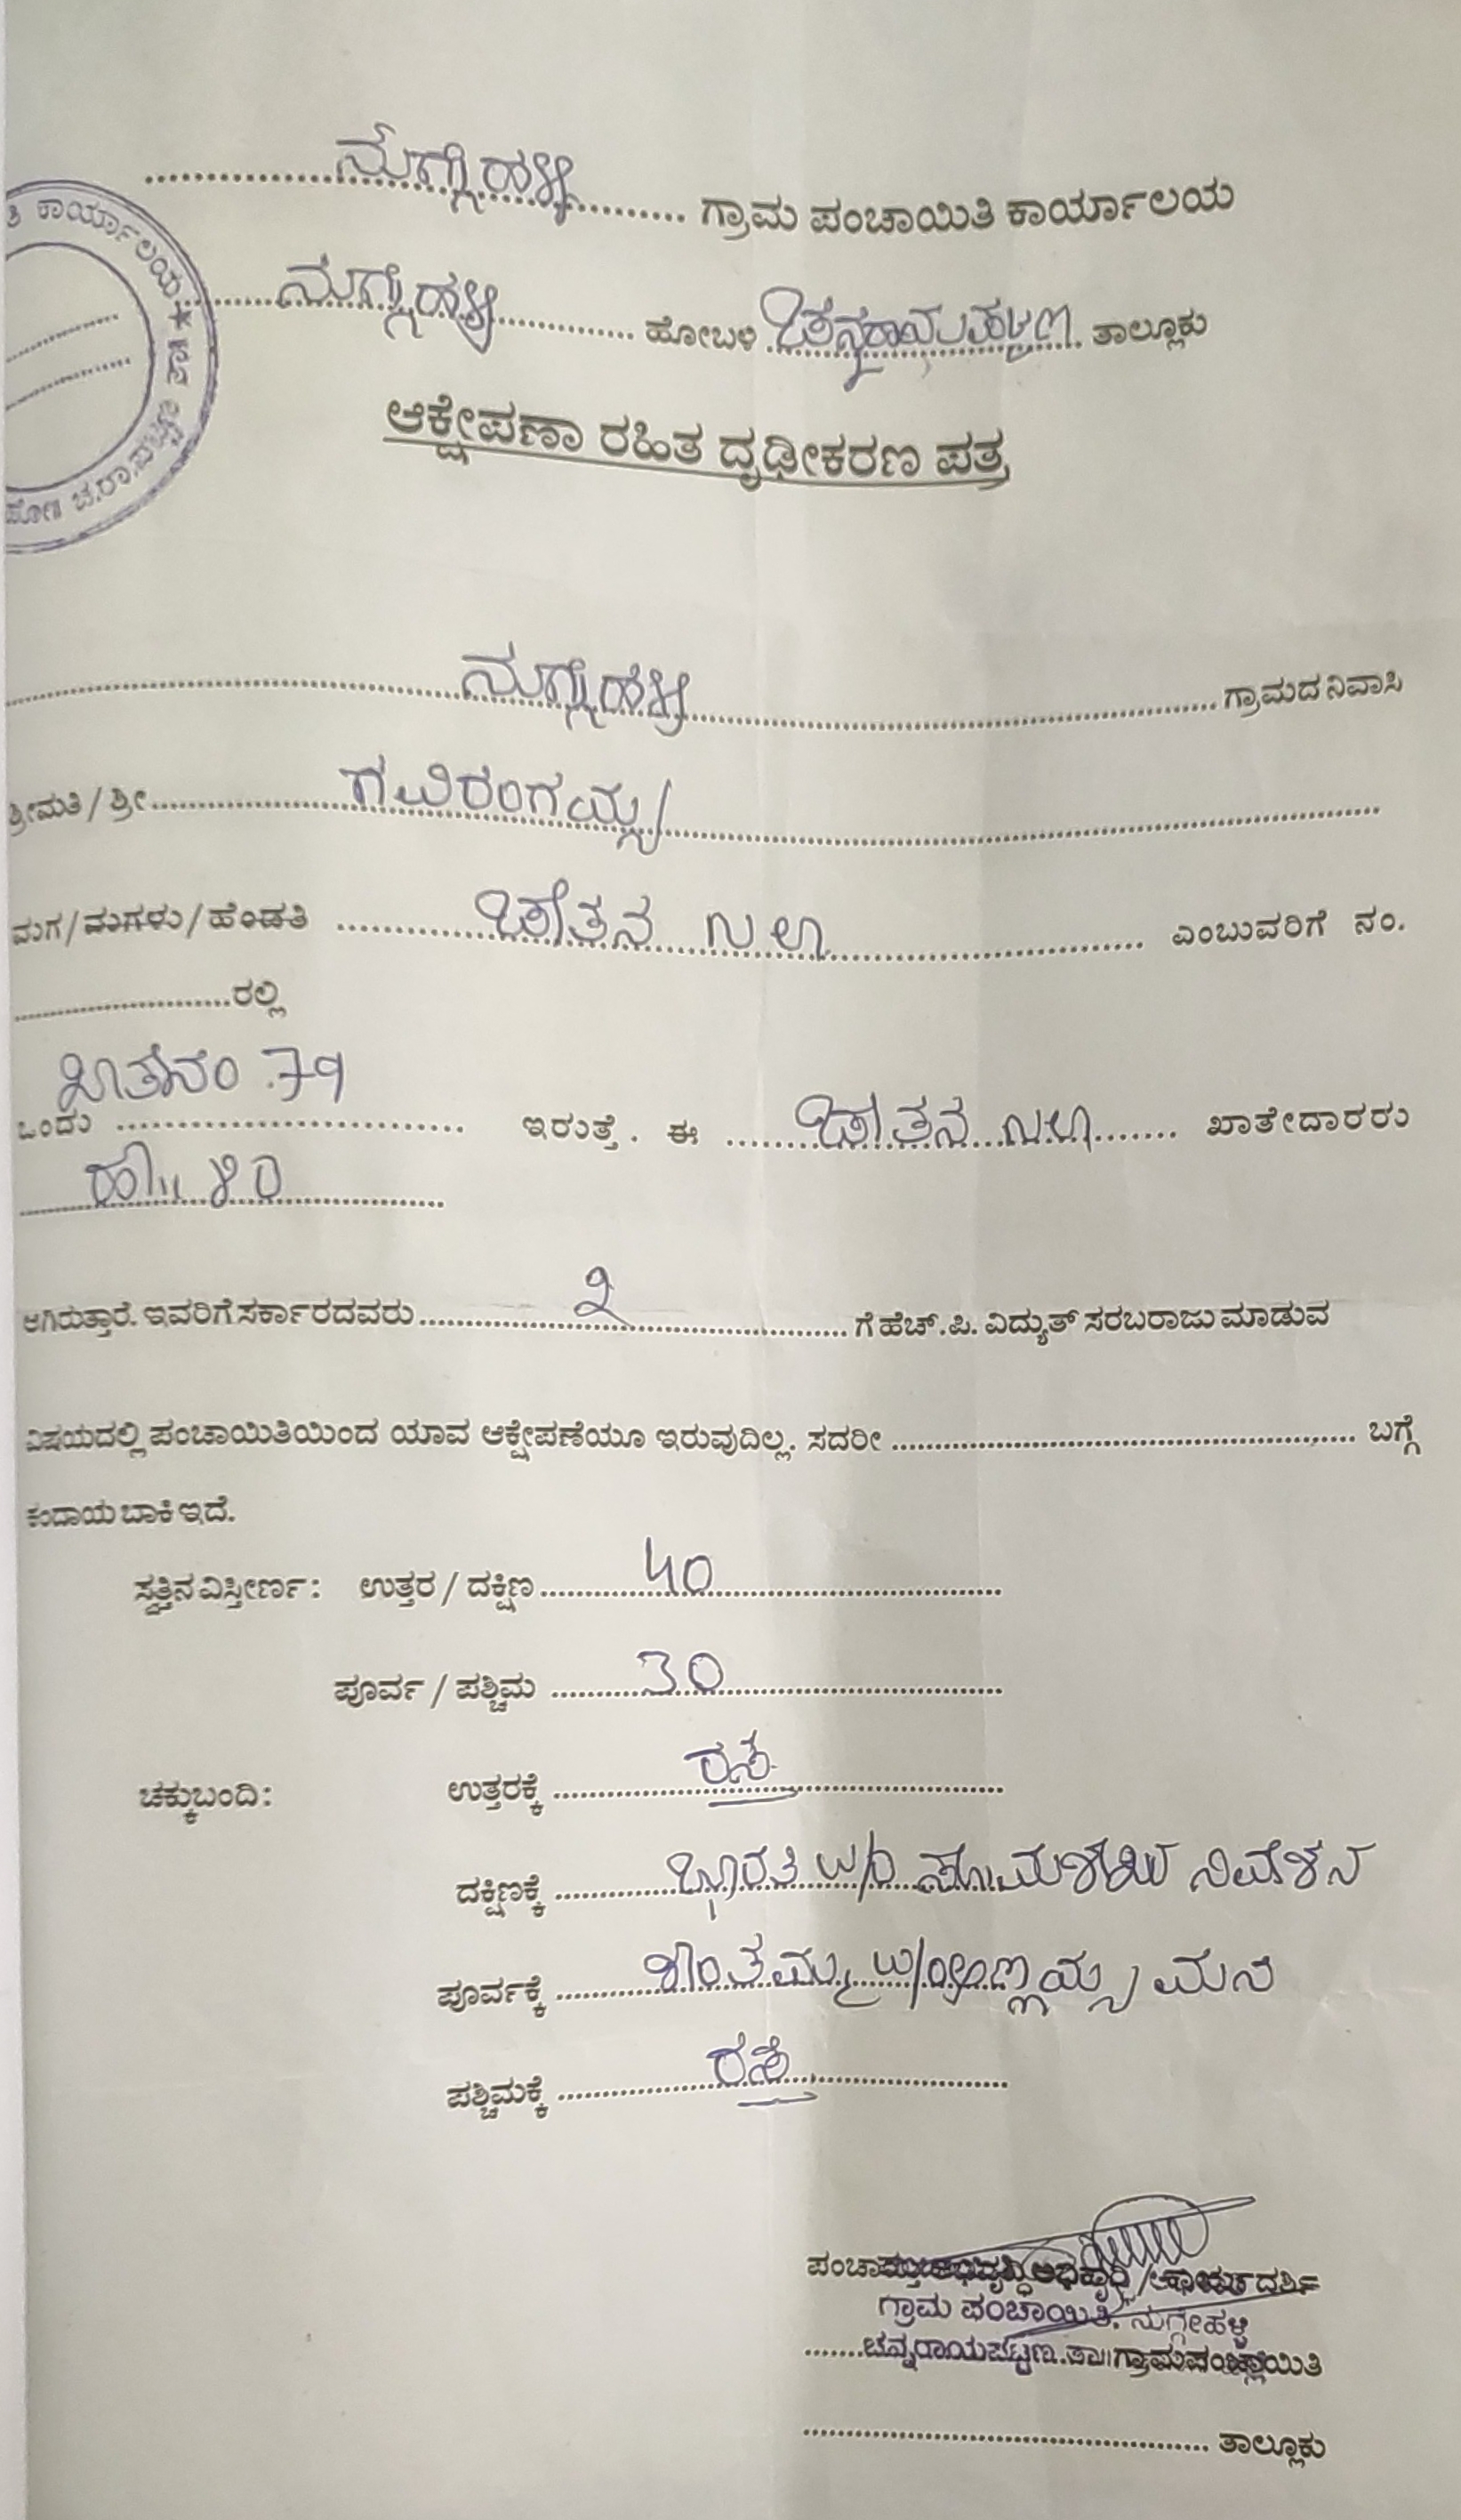 ನುಗ್ಗೇಹಳ್ಳಿ ಗ್ರಾಮ ಪಂಚಾಯಿತಿ ಕಾರ್ಯಾಲಯ
ತಿ ಕಾರ್ಯಾಲಯ ★
ನುಗ್ಗೇಹಳ್ಳಿ ಹೋಬಳಿ ಚನ್ನರಾಯಪಟ್ಟಣ ತಾಲ್ಲೂಕು
ಆಕ್ಷೇಪಣಾ ರಹಿತ ದೃಢೀಕರಣ ಪತ್ರ
ನುಗ್ಗೇಹಳ್ಳಿ ಗ್ರಾಮದ ನಿವಾಸಿ
ಶ್ರೀಮತಿ / ಶ್ರೀ ಗವಿರಂಗಯ್ಯ
ಮಗ / ಮಗಳು / ಹೆಂಡತಿ ಚೇತನ ಎಂಬುವರಿಗೆ ನಂ.
ರಲ್ಲಿ
ಖಾತೆನಂ 79
ಒಂದು ಇರುತ್ತೆ. ಈ ಚೇತನ ಖಾತೇದಾರರು
ಆಗಿರುತ್ತಾರೆ. ಇವರಿಗೆ ಸರ್ಕಾರದವರು ೨ ಗೆ ಹೆಚ್.ಪಿ. ವಿದ್ಯುತ್ ಸರಬರಾಜು ಮಾಡುವ
ವಿಷಯದಲ್ಲಿ ಪಂಚಾಯಿತಿಯಿಂದ ಯಾವ ಆಕ್ಷೇಪಣೆಯೂ ಇರುವುದಿಲ್ಲ. ಸದರೀ ಬಗ್ಗೆ
ಕಂದಾಯ ಬಾಕಿ ಇದೆ.
ಸ್ವತ್ತಿನ ವಿಸ್ತೀರ್ಣ : ಉತ್ತರ / ದಕ್ಷಿಣ 40
ಪೂರ್ವ / ಪಶ್ಚಿಮ 30
ಚಕ್ಕುಬಂದಿ : ಉತ್ತರಕ್ಕೆ ರಸ್ತೆ
ದಕ್ಷಿಣಕ್ಕೆ ಭಾರತಿ W/O ಸೋಮಶೇಖರ ನಿವೇಶನ
ಪೂರ್ವಕ್ಕೆ ಶಾಂತಮ್ಮ W/O ಅಣ್ಣಯ್ಯ ಮನೆ
ಪಶ್ಚಿಮಕ್ಕೆ ರಸ್ತೆ
ಗ್ರಾಮ ಪಂಚಾಯಿತಿ, ನುಗ್ಗೇಹಳ್ಳಿ
ಚನ್ನರಾಯಪಟ್ಟಣ ತಾ॥ ಗ್ರಾಮ ಪಂಚಾಯಿತಿ
ತಾಲ್ಲೂಕು